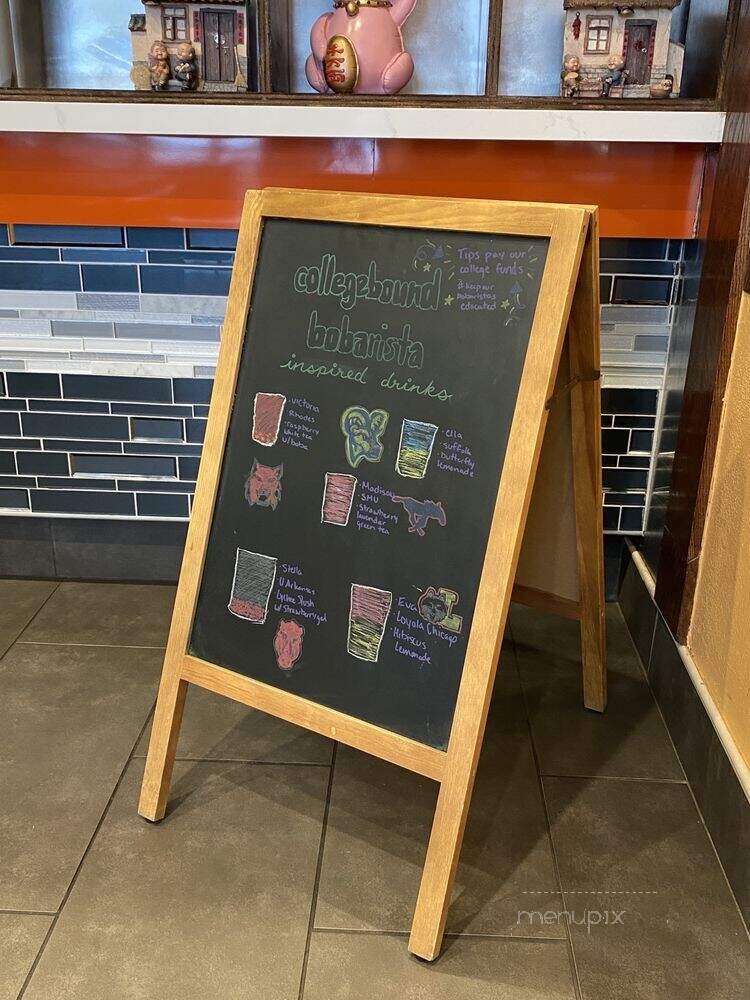 collegebound
bobarista
inspired drinks
Tips pay our
college funds
& keep our
bobaristas
educated
·Victoria
Rhodes
·raspberry
white tea
w/boba
·Ella
·suffolk
·butterfly
lemonade
·Madison
·SMU
·strawberry
lavender
green tea
·Stella
·U Arkansas
Lychee Slush
w/ strawberry gel
·Eva
·Loyola Chicago
·Hibiscus
Lemonade
menupix